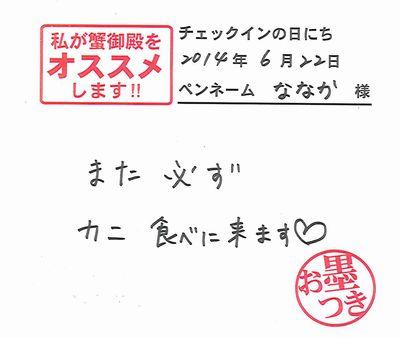 私が蟹御殿を
オススメ
します!!
チェックインの日にち
2014年 6月22日
ペンネーム ななか 様
また 必ず
カニ 食べに来ます♡
お墨つき